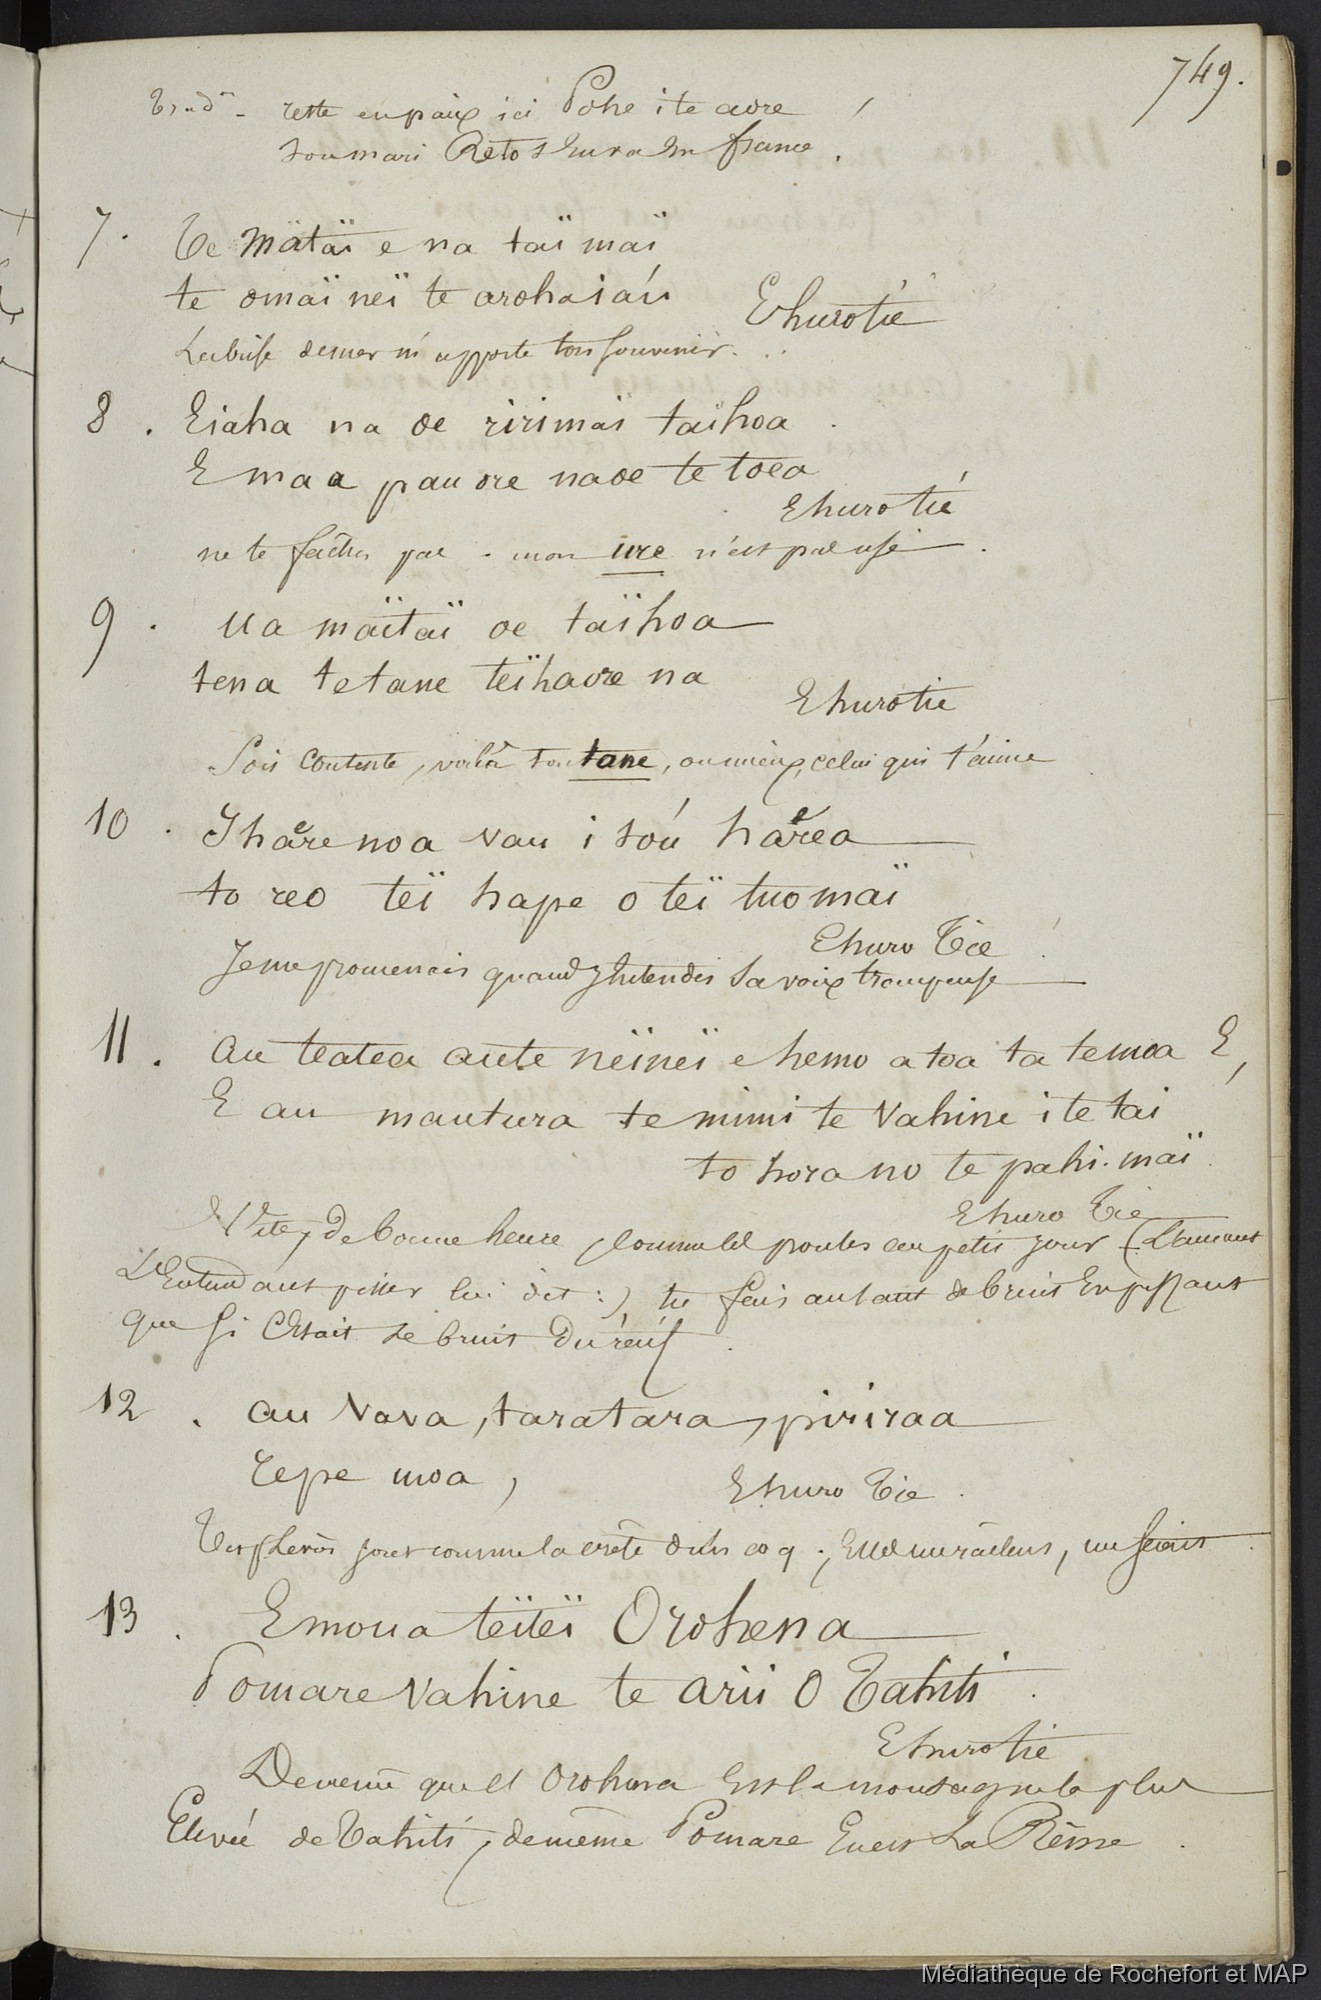 749.
Trad<sup>on</sup> - reste en paix ici Pohe i te aore
ton mari Reto s'en va en france.
7. Te mataï e na taï maï
te omaï neï te aroha iaú
Ehurotié
La brise de mer m'apporte ton souvenir...
8. Eiaha na oe ririmaï taihoa.
E maa pau ore na oe te toea
Ehurotié
ne te fâches pas - mon ure n'est pas usé.
9. Ua maïtaï oe taïhoa
tena te tane teïhaore na
Ehurotie
Sois contente, voilà ton tane, ou mieux, celui qui t'aime
10. I haere noa vau i tóu haerea
to reo teï hape o teï tuo maï
Ehuro Tie
Je me promenais quand j'entendis ta voix trompeuse
11. au teatea aute neïneï e hemo a toa ta temoa E,
E au mautura te mimi te vahine i te tai
to hora no te pahi. maï.
Ehuro Tie
Vite, de bonne heure, comme les poules au petit jour (L'amant
L'Entendant pisser lui dit:), tu fais autant de bruit En pissant
que si C'était le bruit Du récif.
12. au vava, taratara, piriraa
Tepe moa,
Ehuro Tie.
Tes lèvres sont comme la crête d'un coq.
13. Emoua teïteï Orohena
Pomare vahine te arii O Tahiti.
Ehurotie
De même que l'Orohena Est la montagne la plus
Elevée de Tahiti, de même Pomare En est La Reine.
Médiathèque de Rochefort et MAP